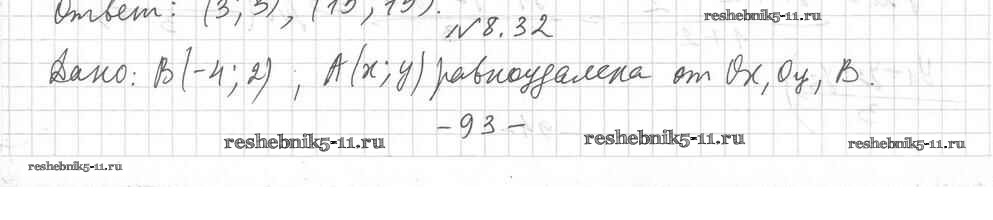 Ответ: (3; 3), (15; 15).
reshebnik5-11.ru
№8.32
Дано: B(-4; 2); A(x; y) равноудалена от Ox, Oy, B.
-93-
reshebnik5-11.ru
reshebnik5-11.ru
reshebnik5-11.ru
reshebnik5-11.ru